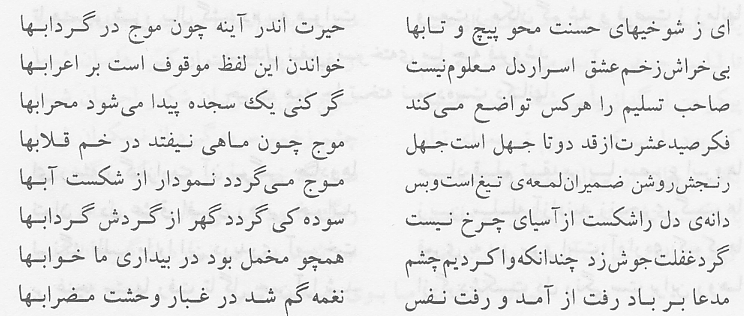 ای ز شوخیهای حسنت محو پیچ و تابها حیرت اندر آینه چون موج در گردابها
بی‌خراش زخم عشق اسرار دل معلوم نیست خواندن این لفظ موقوف است بر اعرابها
صاحب تسلیم را هرکس تواضع می‌کند گر کنی یک سجده پیدا می‌شود محرابها
فکر صید عشرت از قد دوتا جهل است جهل موج چون ماهی نیفتد در خم قلابها
رنجش روشن ضمیران لمعه‌ی تیغ است و بس موج می‌گردد نمودار از شکست آبها
دانه‌ی دل را شکست از آسیای چرخ نیست سوده کی گردد گهر از گردش گردابها
گرد غفلت جوش زد چندانکه واکردیم چشم همچو مخمل بود در بیداری ما خوابها
مدعا بر باد رفت از آمد و رفت نفس نغمه گم شد در غبار وحشت مضرابها